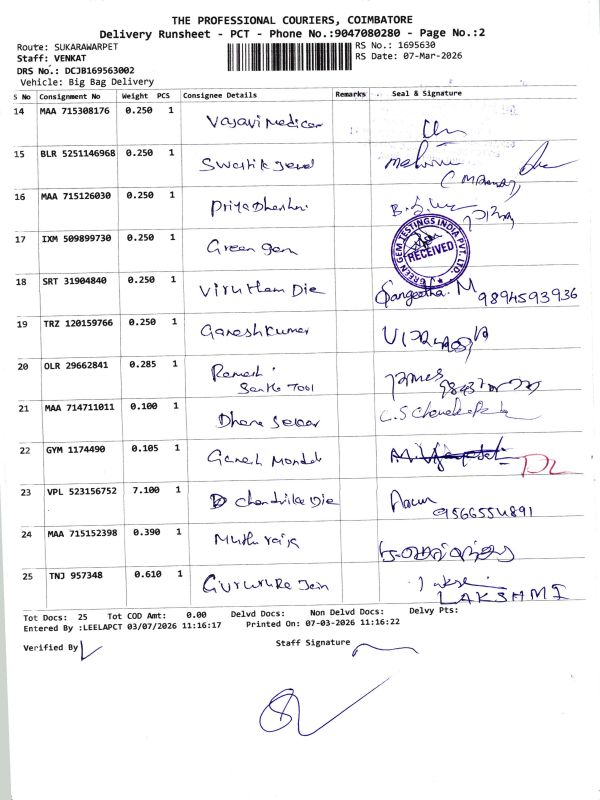 THE PROFESSIONAL COURIERS, COIMBATORE
Delivery Runsheet - PCT - Phone No.:9047080280 - Page No.:2
Route: SUKARAWARPET
RS No.: 1695630
Staff: VENKAT
RS Date: 07-Mar-2026
DRS No.: DCJB169563002
Vehicle: Big Bag Delivery
S No Consignment No Weight PCS Consignee Details Remarks Seal & Signature
14 MAA 715308176 0.250 1 Vasavi Medicar
15 BLR 5251146968 0.250 1 Swastik
16 MAA 715126030 0.250 1 Priya Dharshni
17 IXM 509899730 0.250 1 Green gem
GREEN GEM TESTINGS INDIA PVT. LTD.
RECEIVED
18 SRT 31904840 0.250 1 Virutham Die Sangeetha. M 9894593936
19 TRZ 120159766 0.250 1 Ganesh Kumar
20 OLR 29662841 0.285 1 Ramesh
21 MAA 714711011 0.100 1 Dhana Sekar
22 GYM 1174490 0.105 1 Ganesh Mondal
23 VPL 523156752 7.100 1 Chandrika Die
9566554891
24 MAA 715152398 0.390 1 Muthu raja
25 TNJ 957348 0.610 1 Jain
LAKSHMI
Tot Docs: 25 Tot COD Amt: 0.00 Delvd Docs: Non Delvd Docs: Delvy Pts:
Entered By :LEELAPCT 03/07/2026 11:16:17 Printed On: 07-03-2026 11:16:22
Verified By
Staff Signature